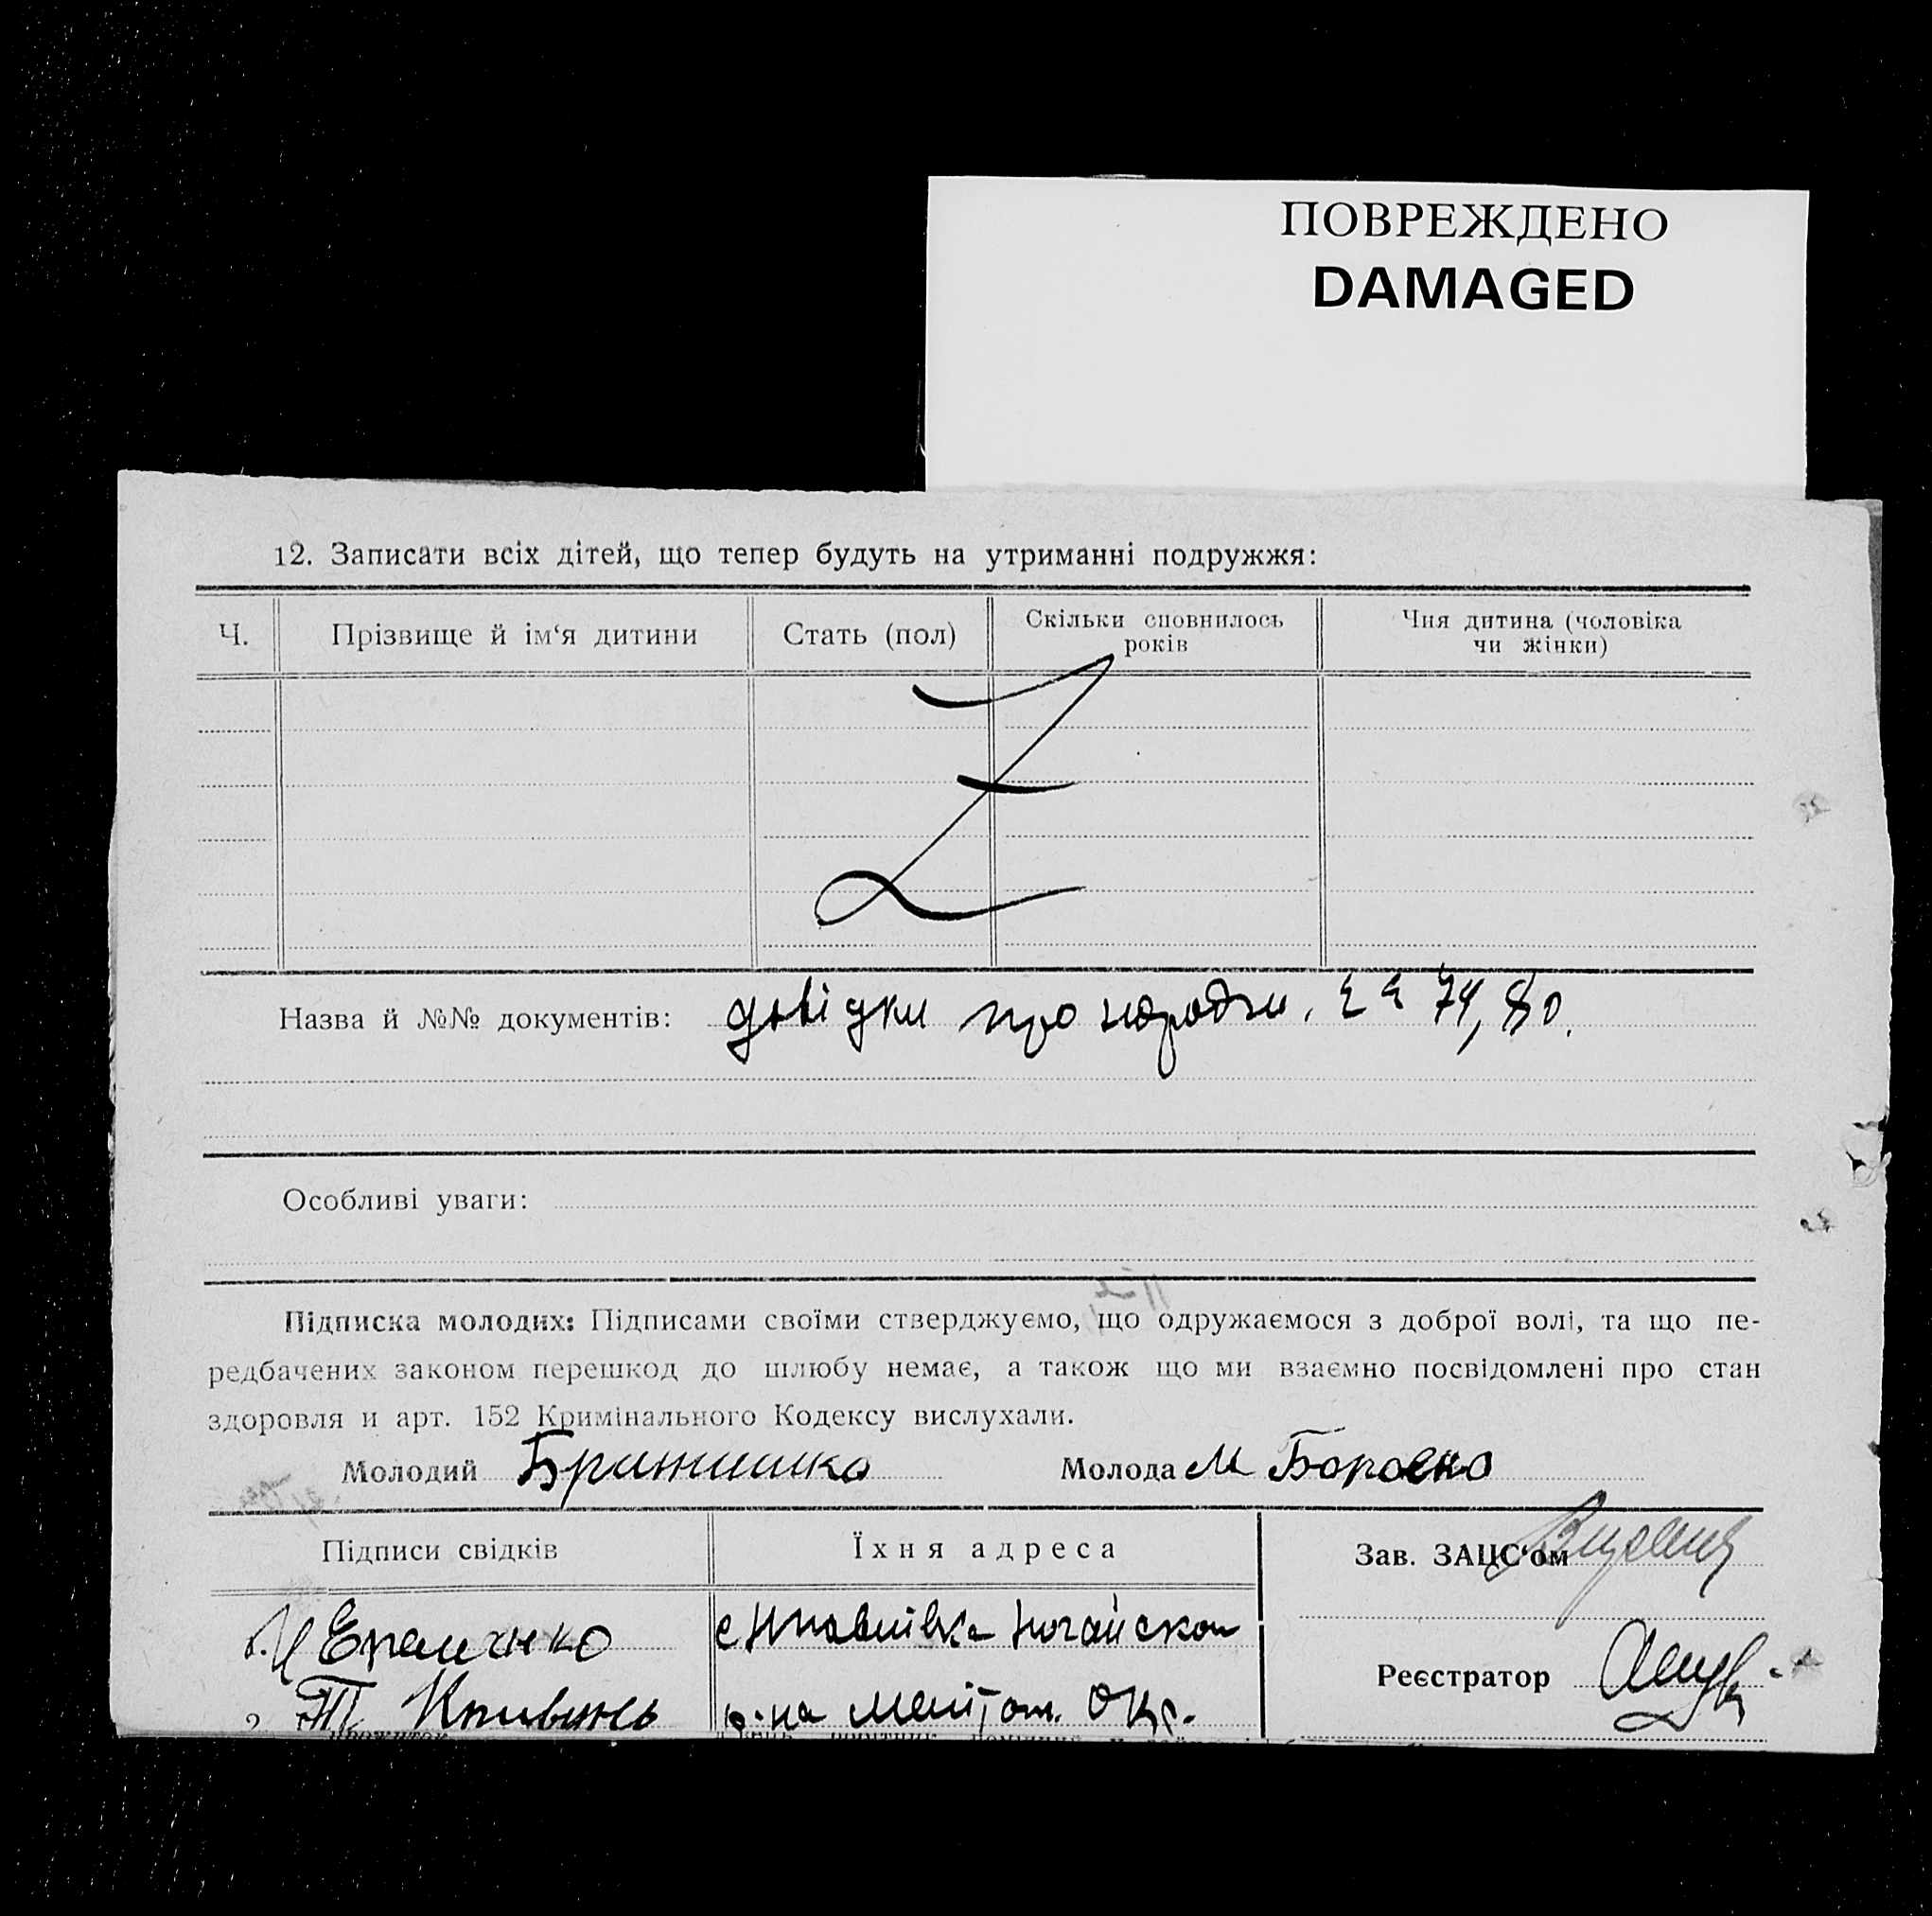 ПОВРЕЖДЕНО
DAMAGED
12. Записати всіх дітей, що тепер будуть на утриманні подружжя:
Ч. Прізвище й ім‘я дитини Стать (пол) Скільки сповнилось років Чия дитина (чоловіка чи жінки)
Назва й №№ документів: довідки про народжен. 74, 80.
Особливі уваги:
Підписка молодих: Підписами своїми стверджуємо, що одружаємося з доброї волі, та що пе-
редбачених законом перешкод до шлюбу немає, а також що ми взаємно посвідомлені про стан
здоровля и арт. 152 Кримінального Кодексу вислухали.
Молодий Молода М
Підписи свідків Їхня адреса Зав. ЗАЦС‘ом
Реєстратор
2 р-на Меліт. Окр.